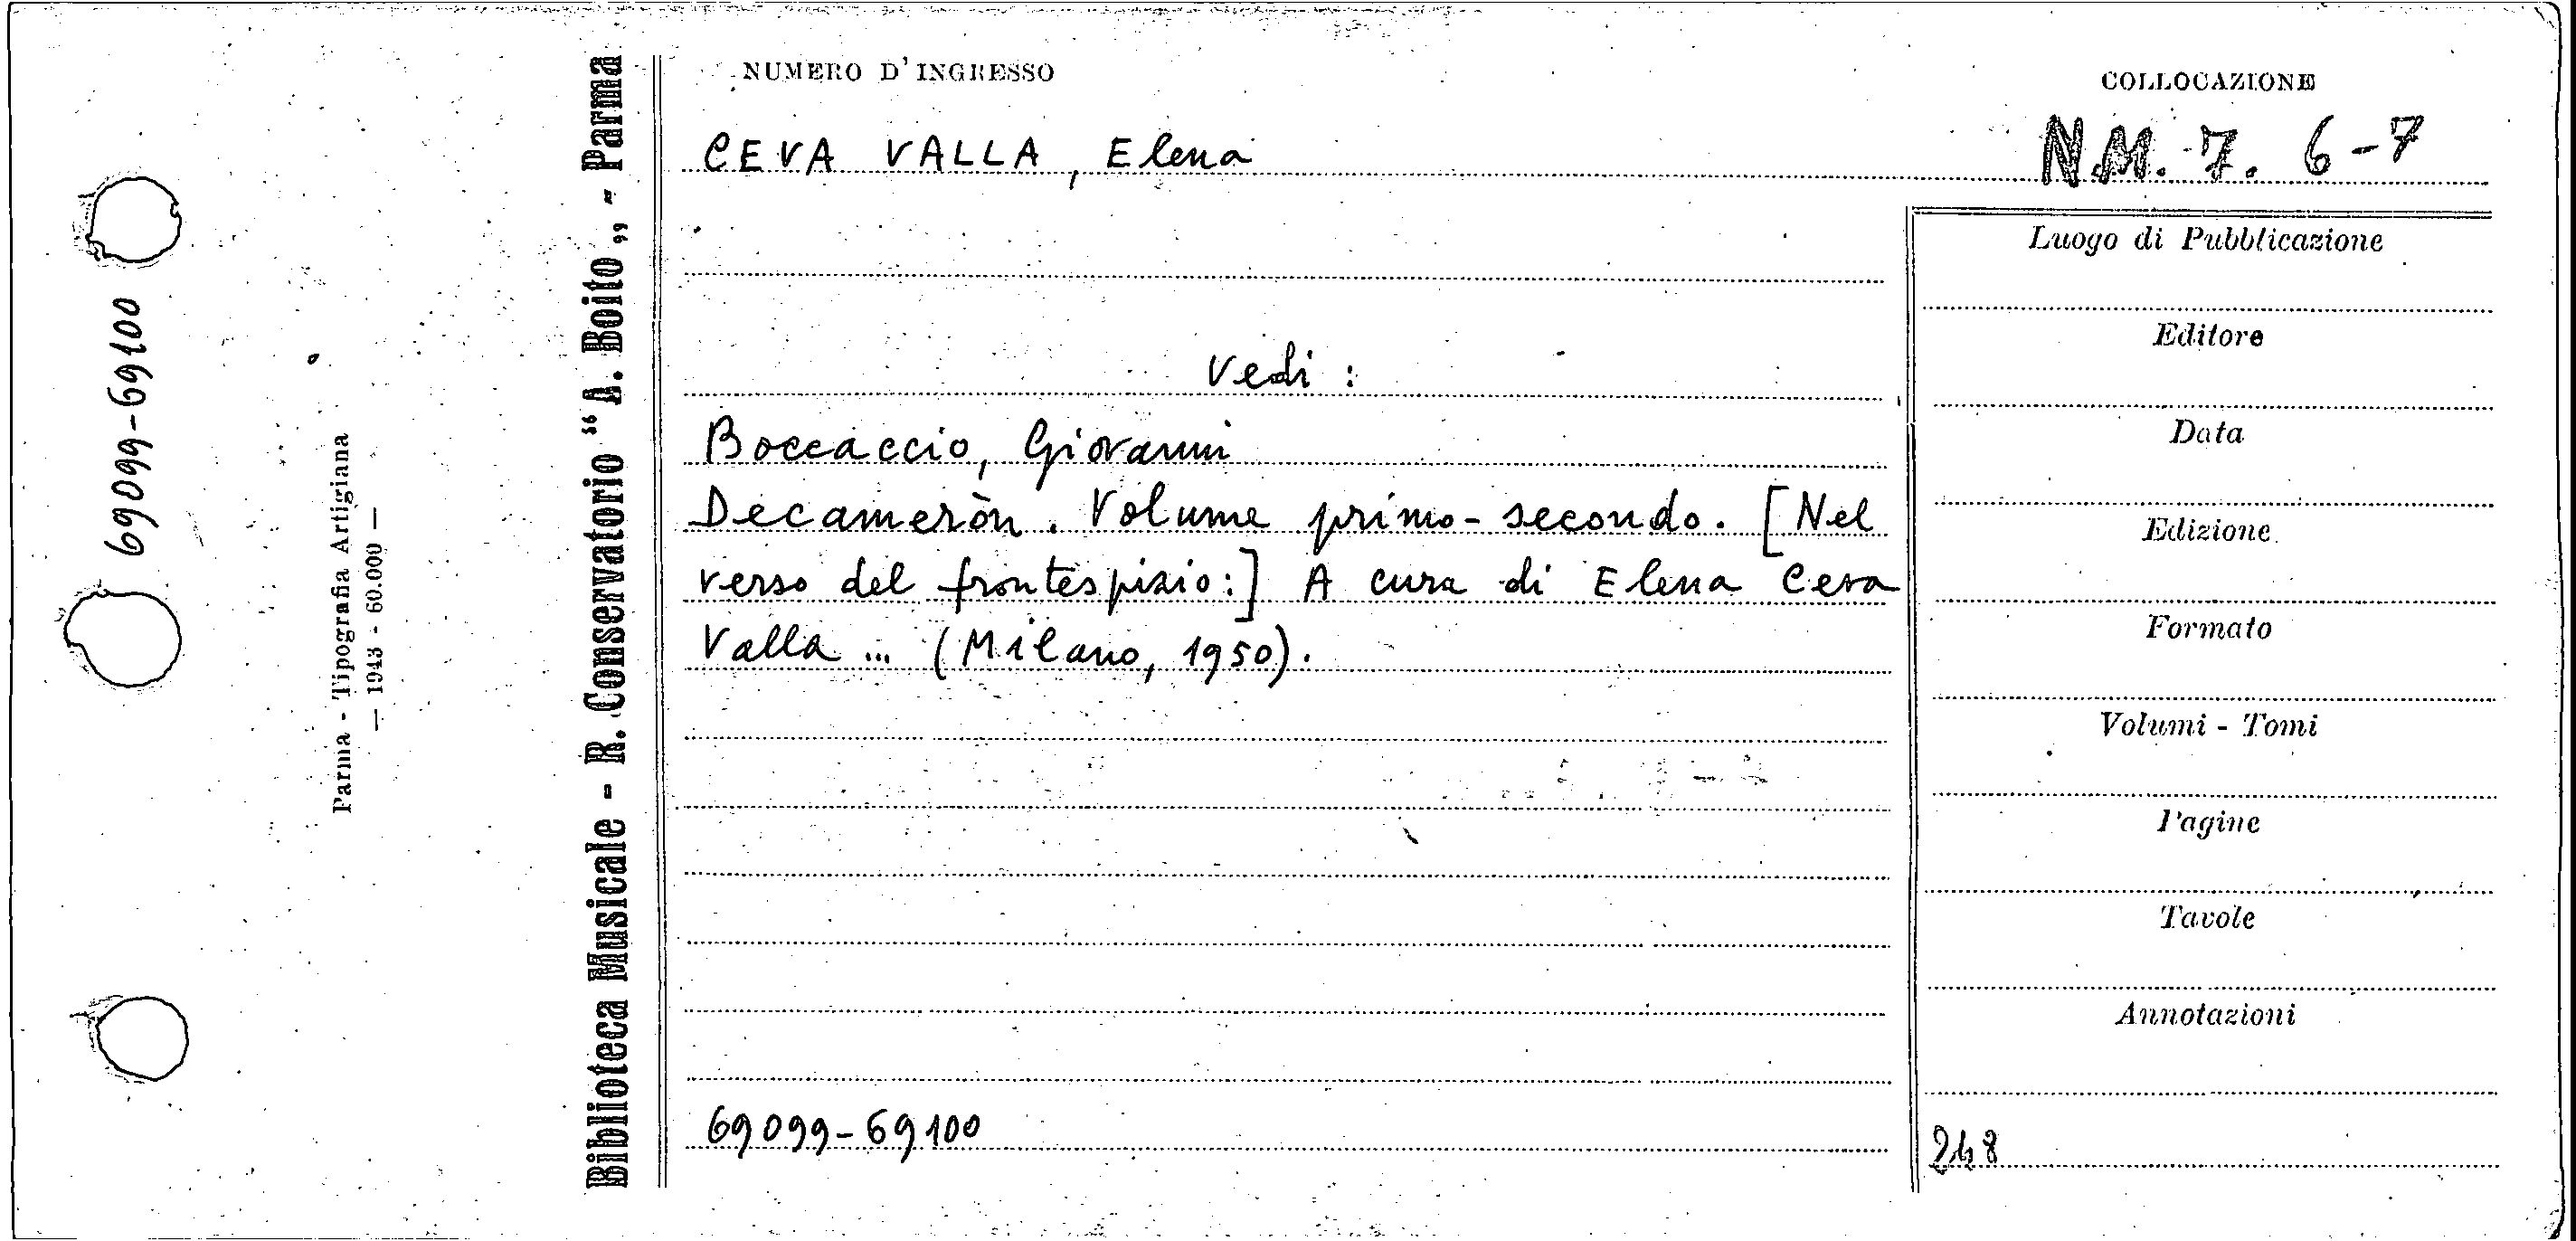 69099-69100
Parma - Tipografia Artigiana
— 1943 - 60.000 —
Biblioteca Musicale - R. Conservatorio "A. Boito„ - Parma
NUMERO D'INGRESSO
COLLOCAZIONE
CEVA VALLA, Elena
N.M. 7. 6-7
Vedi :
Boccaccio, Giovanni
Decameròn. Volume primo-secondo. [Nel
verso del frontespizio:] A cura di Elena Ceva
Valla ... (Milano, 1950).
69099-69100
Luogo di Pubblicazione
Editore
Data
Edizione
Formato
Volumi - Tomi
Pagine
Tavole
Annotazioni
248